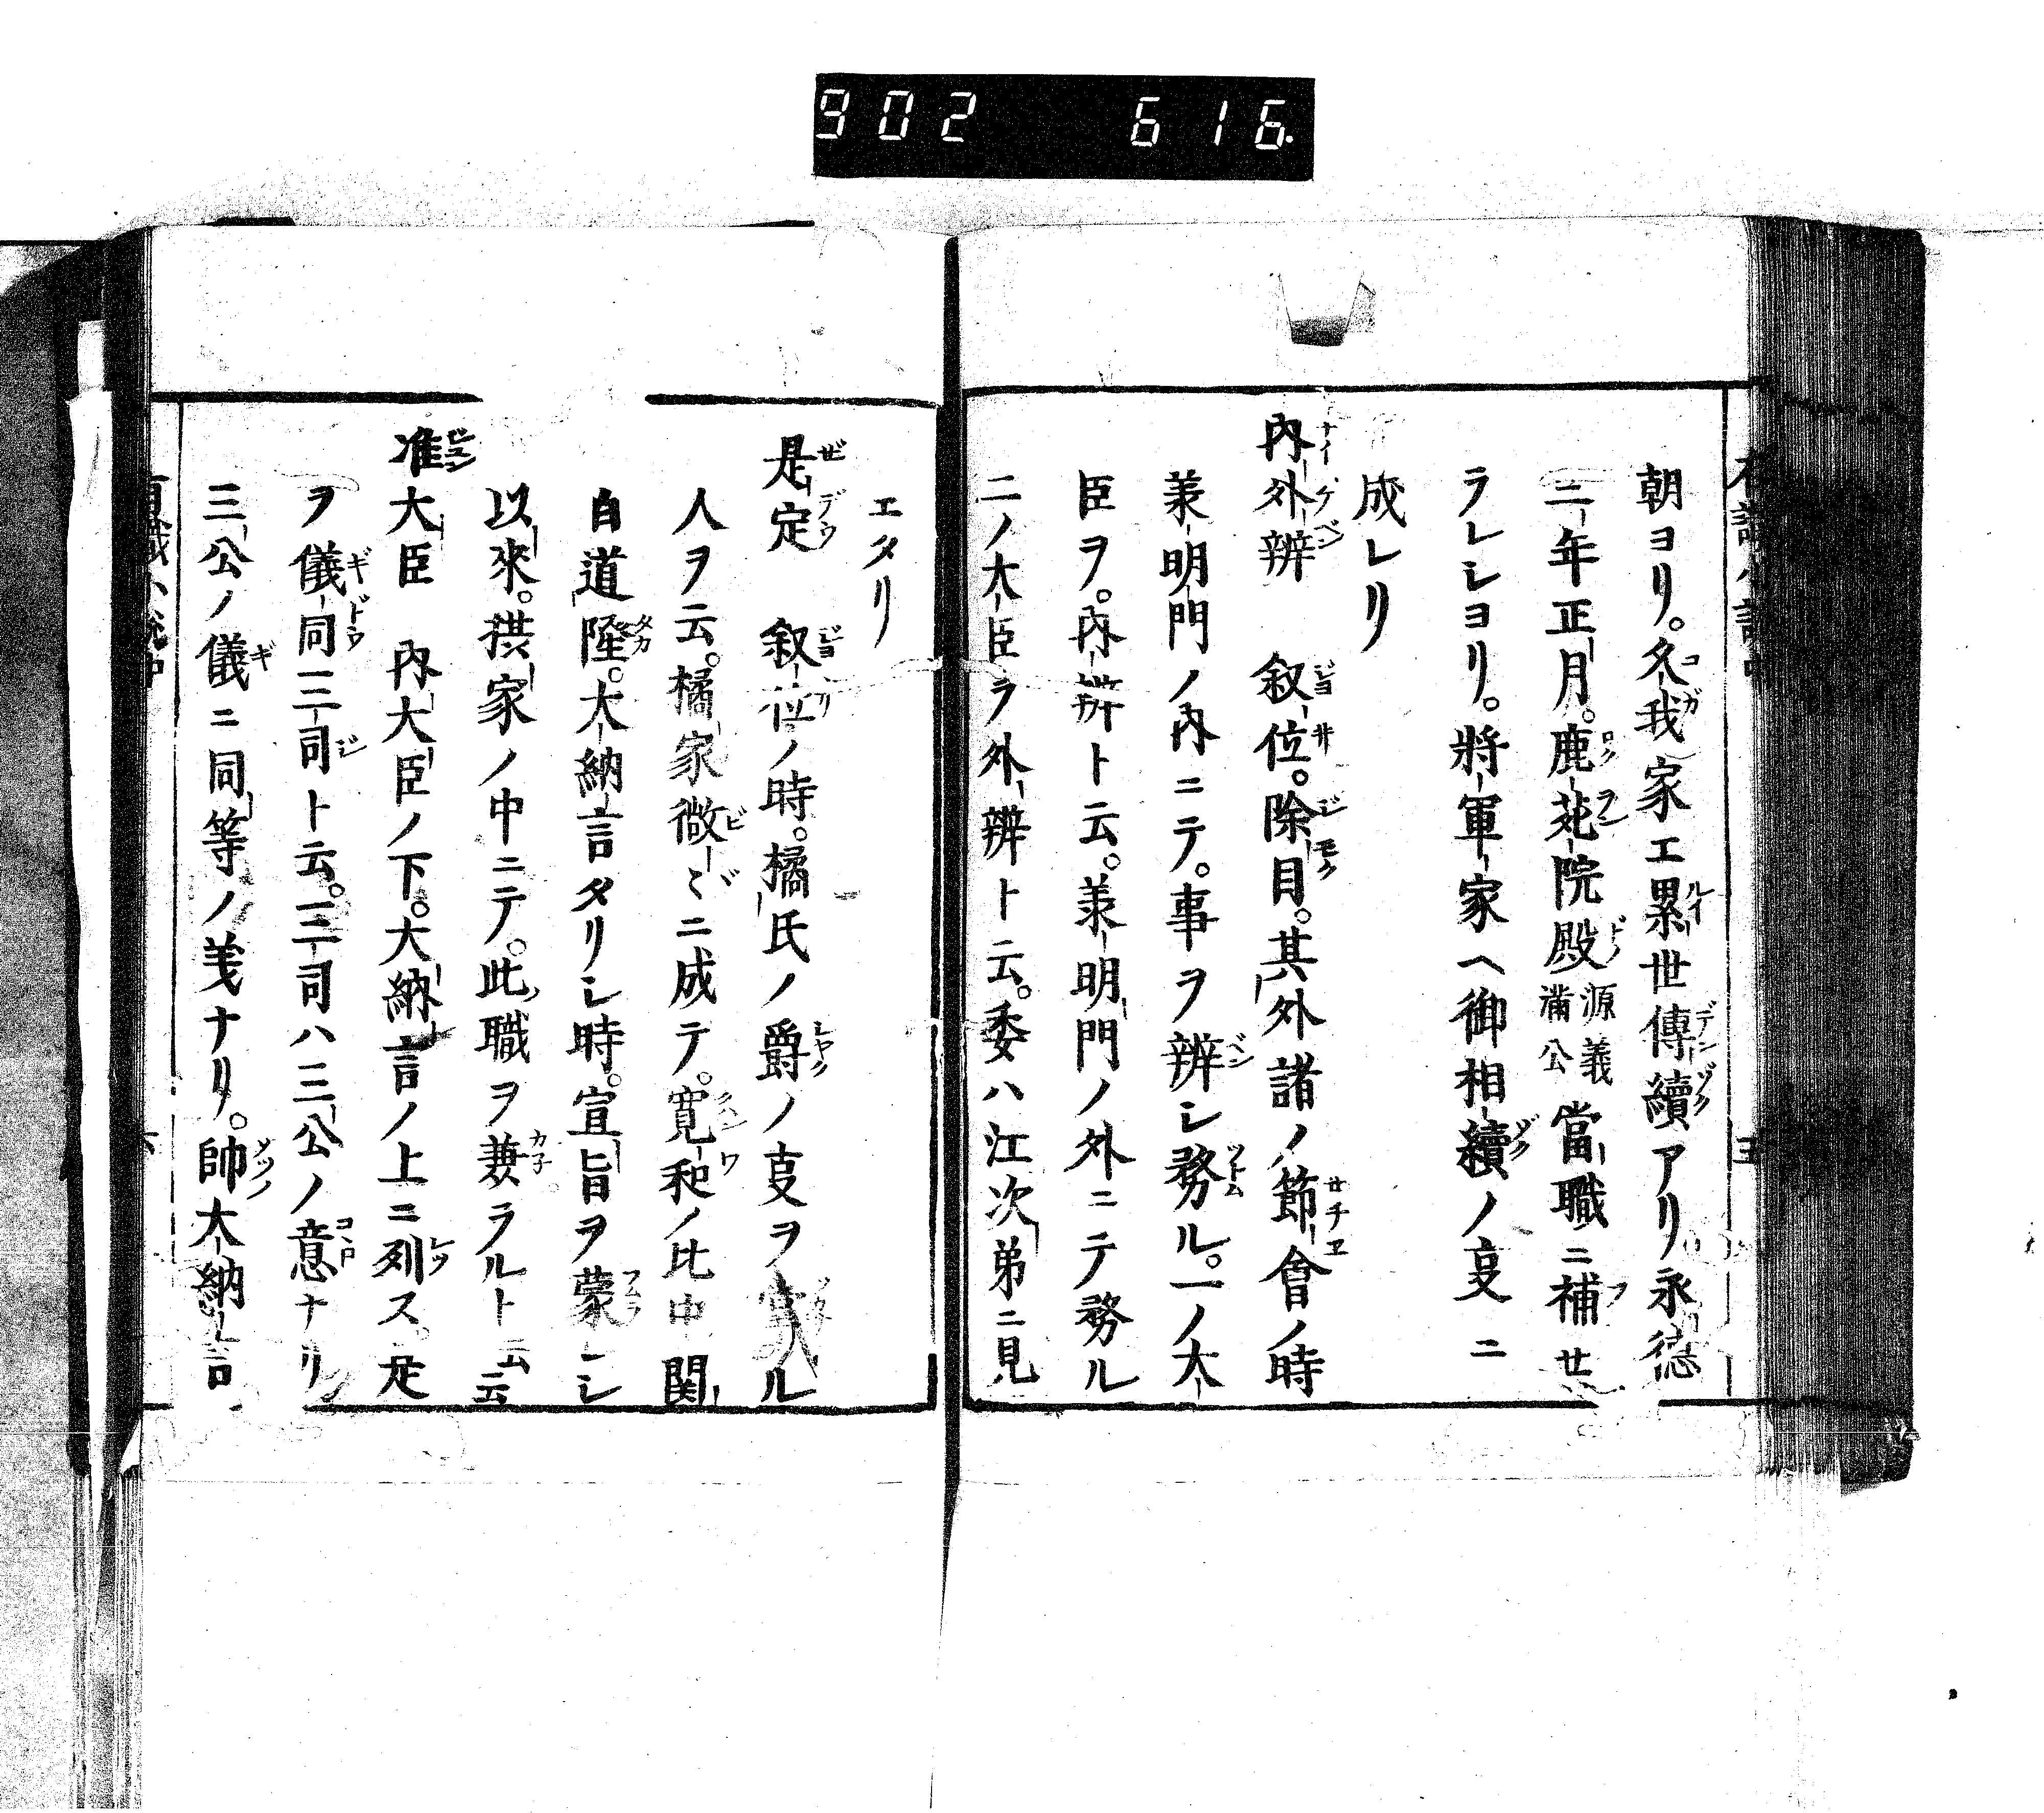 902 616.
朝ヨリ。久我家エ累世傳續アリ永德
二年正月。鹿苑院殿源義滿公當職ニ補セ
ラレシヨリ。將軍家ヘ御相續ノ㕝ニ
成レリ
內外辨 叙位。除目。其外諸ノ節會ノ時
羕明門ノ內ニテ。事ヲ辨シ務ル。一ノ大
臣ヲ。內辨ト云。羕明門ノ外ニテ務ル
二ノ大臣ヲ外辨ト云。委ハ江次第ニ見
エタリ
是定 叙位ノ時。橘氏ノ爵ノ㕝ヲ掌ル
人ヲ云。橘家微〻ニ成テ。寛和ノ比中関
白道隆。大納言タリシ時。宣旨ヲ蒙シ
以來。洪家ノ中ニテ。此職ヲ兼ラルト云云
准大臣 內大臣ノ下。大納言ノ上ニ列ス。是
ヲ儀同三司ト云。三司ハ三公ノ意ナリ
三公ノ儀ニ同等ノ義ナリ。帥大納言